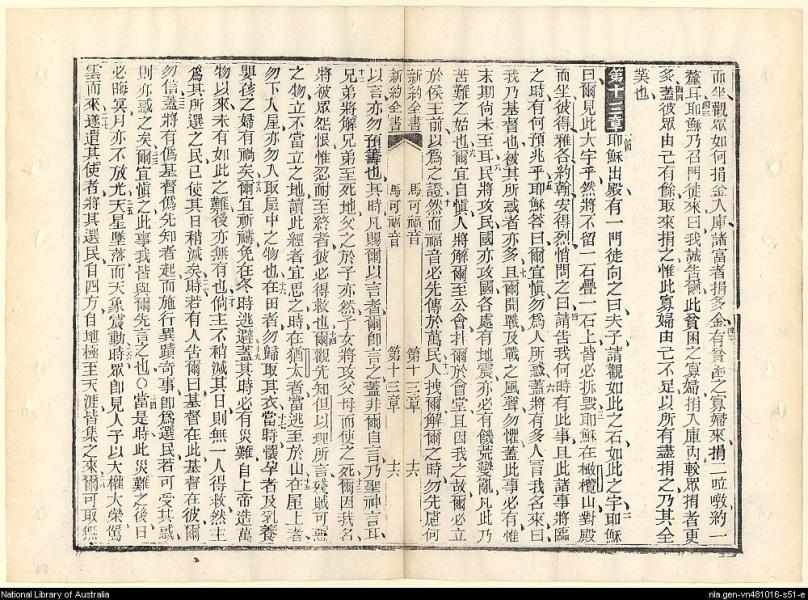 而坐觀眾如何捐金入庫諸富者捐多金有貧窮之寡婦來捐二 約一
釐耳耶穌乃召門徒來曰我誠告爾此貧困之寡婦捐入庫內較眾捐者更
多蓋彼眾由己有餘取來捐之惟此寡婦由己不足以所有盡捐之乃其全
業也
第十三章耶穌出殿有一門徒向之曰夫子請觀如此之石如此之宇耶穌
曰爾見此大宇乎然將不留一石疊一石上皆必拆毀耶穌在橄欖山對殿
而坐彼得雅各約翰安得烈悄問之曰請告我何時有此事且此諸事將臨
之時有何預兆乎耶穌答曰爾宜慎勿爲人所惑蓋將有多人冒我名來曰
我乃基督也彼其所惑者亦多且爾聞戰及戰之風聲勿懼蓋此事必有惟
末期尚未至耳民將攻民國亦攻國各處有地震亦必有饑荒變亂凡此乃
苦難之始也爾宜自愼人將解爾至公會扑爾於會堂且因我之故爾必立
於侯王前以爲之證然而福音必先傳於萬民人拽爾解爾之時勿先慮何
新約全書 馬可福音 第十三章 十六
新約全書 馬可福音 第十三章 十六
以言亦勿預籌也其時凡賜爾以言者爾卽言之蓋非爾自言乃聖神言耳
兄弟將解兄弟至死地父之於子亦然子女將攻父母而使之死爾因我名
將被眾怨恨惟忍耐至終者彼必得救也爾觀先知但以理所言殘賊可惡
之物立不當立之地讀此經者宜思之時在猶太者當逃至於山在屋上者
勿下人屋亦勿入取屋中之物也在田者勿歸取其衣當時懷孕者及乳養
嬰孩之婦有禍矣爾宜祈禱免在冬時逃避蓋其時必有災難自上帝造萬
物以來未有如此之難後亦無有也倘主不稍減其日則無一人得救然主
爲其所選之民已使其日稍減矣時若有人告爾曰基督在此基督在彼爾
勿信蓋將有僞基督僞先知者起而施行異蹟奇事卽爲選民若可受其惑
則亦惑之矣爾宜愼之此事我皆與爾先言之也〇當是時此災難之後日
必晦冥月亦不放光天星墜落而天象震動時眾卽見人子以大權大榮駕
雲而來遂遣其使者將其選民自四方自地極至天涯皆集之來爾可取無
National Library of Australia
nla.gen-vn481016-s51-e